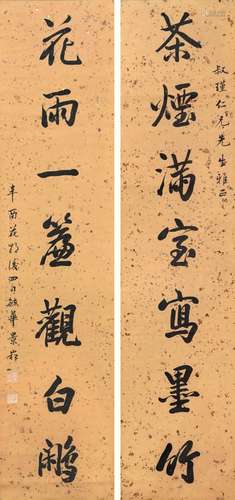 叔瑾仁兄先生雅正
茶煙滿室寫墨竹
花雨一簾觀白鷴
辛酉花朝後四日